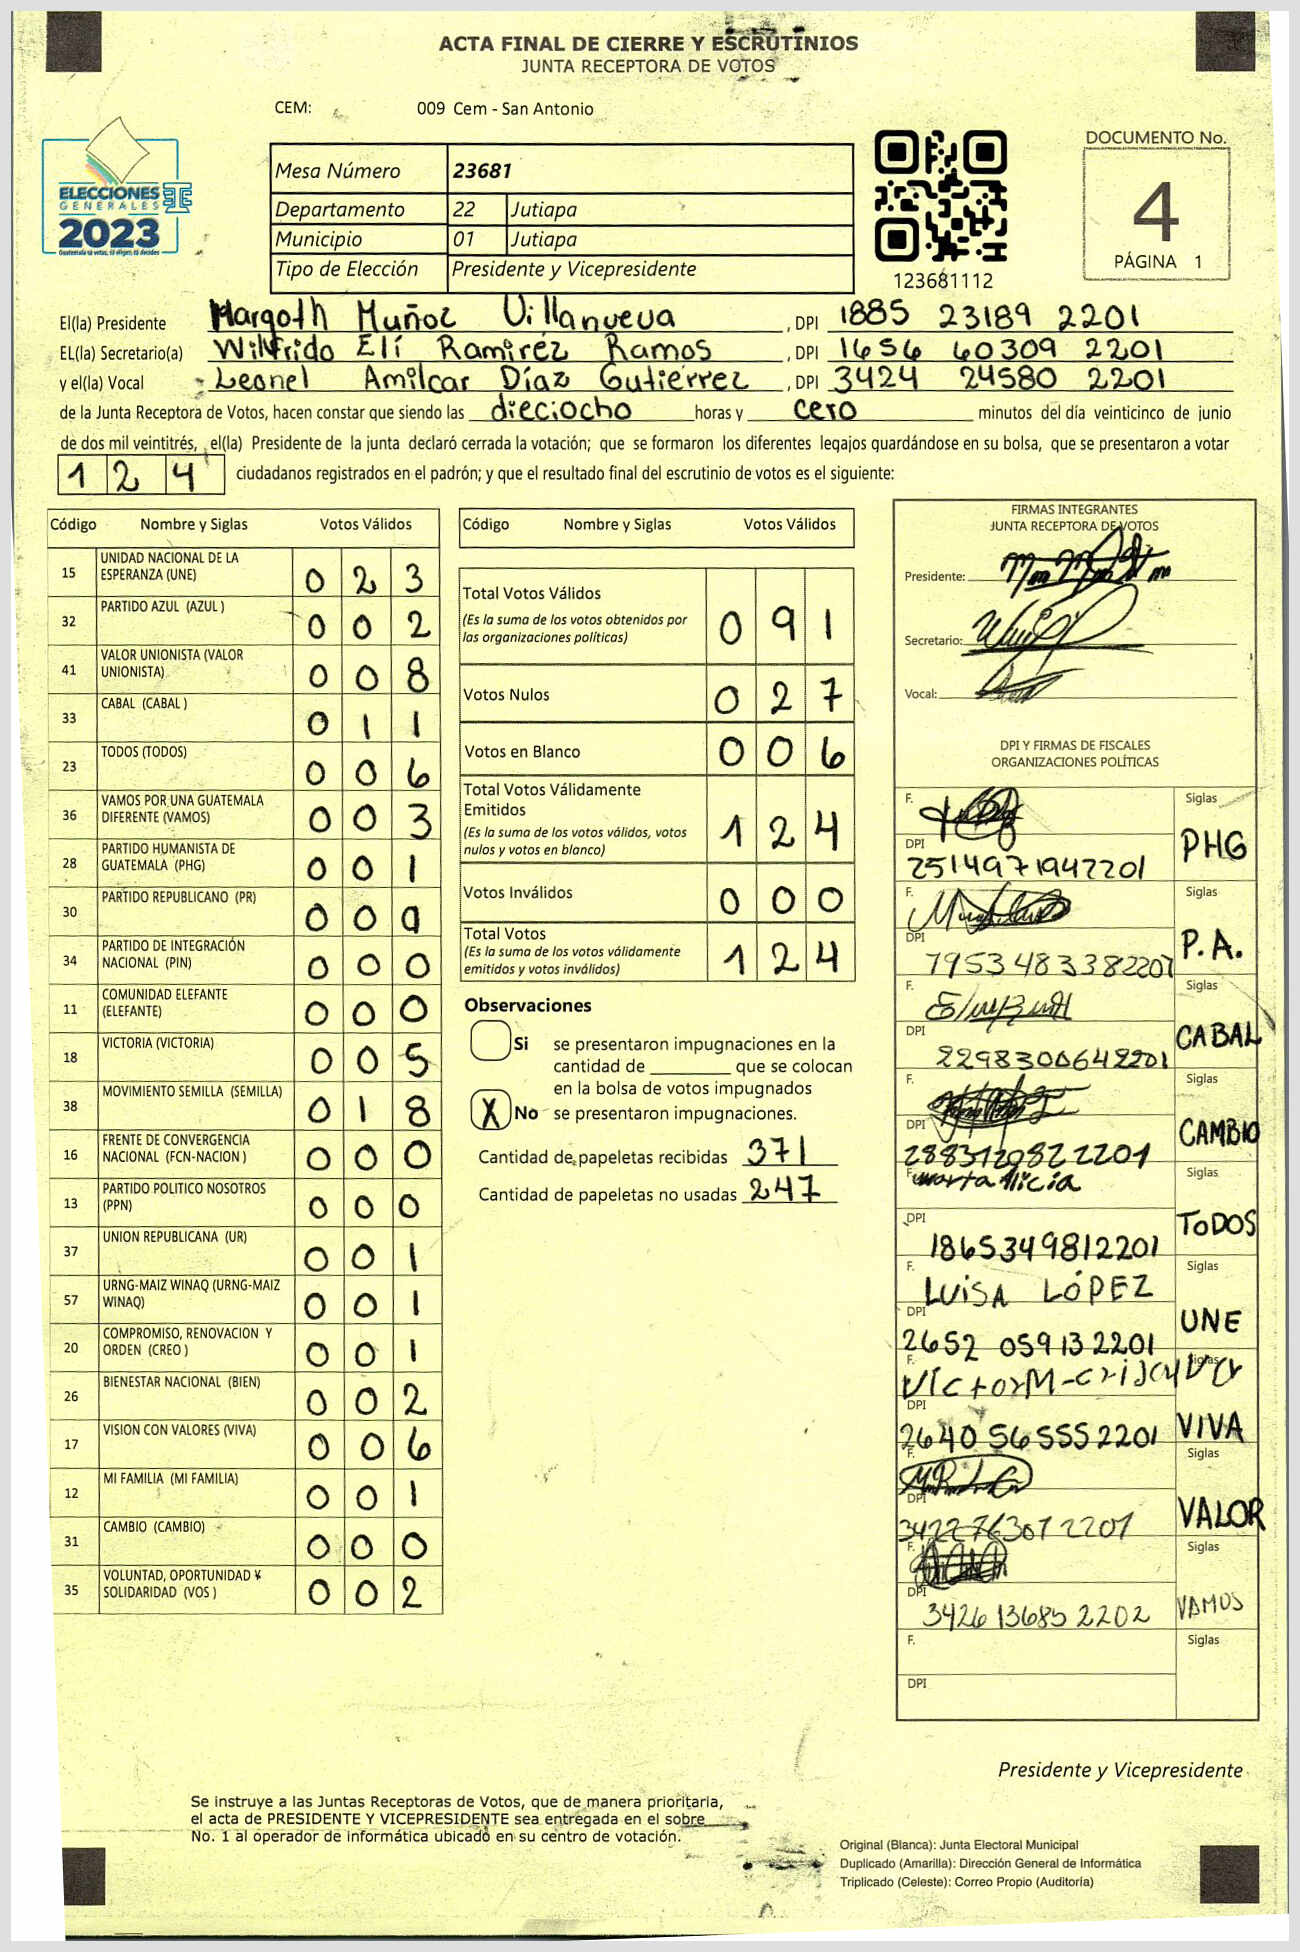 ACTA FINAL DE CIERRE Y ESCRUTINIOS
JUNTA RECEPTORA DE VOTOS
CEM: 009 Cem - San Antonio
ELECCIONES
GENERALES
2023
Guatemala tú votas, tú eliges, tú decides
Mesa Número 23681
Departamento 22 Jutiapa
Municipio 01 Jutiapa
Tipo de Elección Presidente y Vicepresidente
123681112
DOCUMENTO No.
4
PÁGINA 1
El(la) Presidente Margoth Muñoz Villanueva , DPI 1885 23189 2201
EL(la) Secretario(a) Wilfrido Elí Ramírez Ramos , DPI 1656 60309 2201
y el(la) Vocal Leonel Amilcar Díaz Gutiérrez , DPI 3424 24580 2201
de la Junta Receptora de Votos, hacen constar que siendo las dieciocho horas y cero minutos del día veinticinco de junio
de dos mil veintitrés, el(la) Presidente de la junta declaró cerrada la votación; que se formaron los diferentes legajos guardándose en su bolsa, que se presentaron a votar
1 2 4 ciudadanos registrados en el padrón; y que el resultado final del escrutinio de votos es el siguiente:
Código Nombre y Siglas Votos Válidos
15 UNIDAD NACIONAL DE LA
ESPERANZA (UNE) 0 2 3
32 PARTIDO AZUL (AZUL ) 0 0 2
41 VALOR UNIONISTA (VALOR
UNIONISTA) 0 0 8
33 CABAL (CABAL ) 0 1 1
23 TODOS (TODOS) 0 0 6
36 VAMOS POR UNA GUATEMALA
DIFERENTE (VAMOS) 0 0 3
28 PARTIDO HUMANISTA DE
GUATEMALA (PHG) 0 0 1
30 PARTIDO REPUBLICANO (PR) 0 0 0
34 PARTIDO DE INTEGRACIÓN
NACIONAL (PIN) 0 0 0
11 COMUNIDAD ELEFANTE
(ELEFANTE) 0 0 0
18 VICTORIA (VICTORIA) 0 0 5
38 MOVIMIENTO SEMILLA (SEMILLA) 0 1 8
16 FRENTE DE CONVERGENCIA
NACIONAL (FCN-NACION ) 0 0 0
13 PARTIDO POLITICO NOSOTROS
(PPN) 0 0 0
37 UNION REPUBLICANA (UR) 0 0 1
57 URNG-MAIZ WINAQ (URNG-MAIZ
WINAQ) 0 0 1
20 COMPROMISO, RENOVACION Y
ORDEN (CREO ) 0 0 1
26 BIENESTAR NACIONAL (BIEN) 0 0 2
17 VISION CON VALORES (VIVA) 0 0 6
12 MI FAMILIA (MI FAMILIA) 0 0 1
31 CAMBIO (CAMBIO) 0 0 0
35 VOLUNTAD, OPORTUNIDAD Y
SOLIDARIDAD (VOS ) 0 0 2
Código Nombre y Siglas Votos Válidos
Total Votos Válidos
(Es la suma de los votos obtenidos por
las organizaciones políticas) 0 9 1
Votos Nulos 0 2 7
Votos en Blanco 0 0 6
Total Votos Válidamente
Emitidos
(Es la suma de los votos válidos, votos
nulos y votos en blanco) 1 2 4
Votos Inválidos 0 0 0
Total Votos
(Es la suma de los votos válidamente
emitidos y votos inválidos) 1 2 4
Observaciones
Si se presentaron impugnaciones en la
cantidad de ________ que se colocan
en la bolsa de votos impugnados
X No se presentaron impugnaciones.
Cantidad de papeletas recibidas 371
Cantidad de papeletas no usadas 247
FIRMAS INTEGRANTES
JUNTA RECEPTORA DE VOTOS
Presidente:
Secretario:
Vocal:
DPI Y FIRMAS DE FISCALES
ORGANIZACIONES POLÍTICAS
F. Siglas
DPI PHG
2514971942201
F. Siglas
DPI P.A.
7953483382207
F. Siglas
DPI CABAL
2298300642201
F. Siglas
DPI CAMBIO
2883120822201
F. Marta Alicia Siglas
DPI TODOS
1865349812201
F. Siglas
LUISA LÓPEZ
DPI UNE
2652 05913 2201
F. Siglas
DPI VIVA
2640 56555 2201
F. Siglas
DPI VALOR
3422763012201
F. Siglas
DPI VAMOS
3426 13685 2202
F. Siglas
DPI
Presidente y Vicepresidente
Se instruye a las Juntas Receptoras de Votos, que de manera prioritaria,
el acta de PRESIDENTE Y VICEPRESIDENTE sea entregada en el sobre
No. 1 al operador de informática ubicado en su centro de votación.
Original (Blanca): Junta Electoral Municipal
Duplicado (Amarilla): Dirección General de Informática
Triplicado (Celeste): Correo Propio (Auditoría)